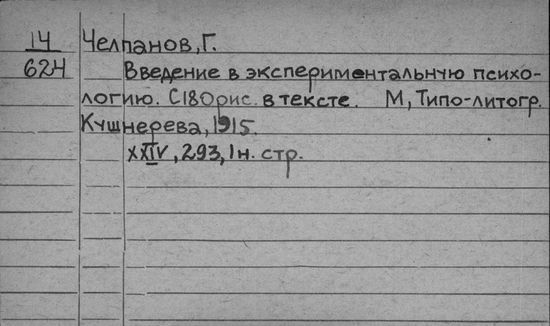 14 Челпанов, Г.
624 Введение в экспериментальную психо-
логию. С 180 рис. в тексте. М, Типо-литогр.
Кушнерева, 1915.
XXIV, 293, 1 н. стр.